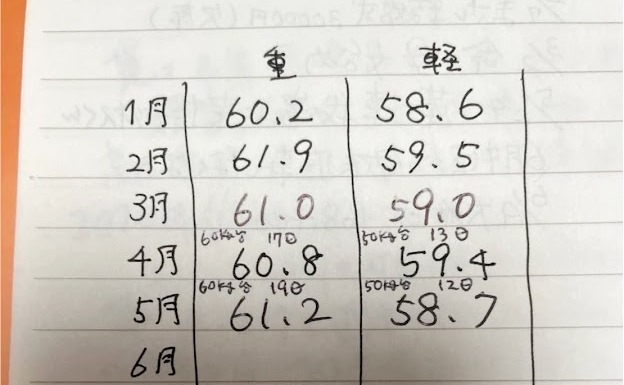 重 軽
1月 60.2 58.6
2月 61.9 59.5
3月 61.0 59.0
60kg台 17日 50kg台 13日
4月 60.8 59.4
60kg台 19日 50kg台 12日
5月 61.2 58.7
6月